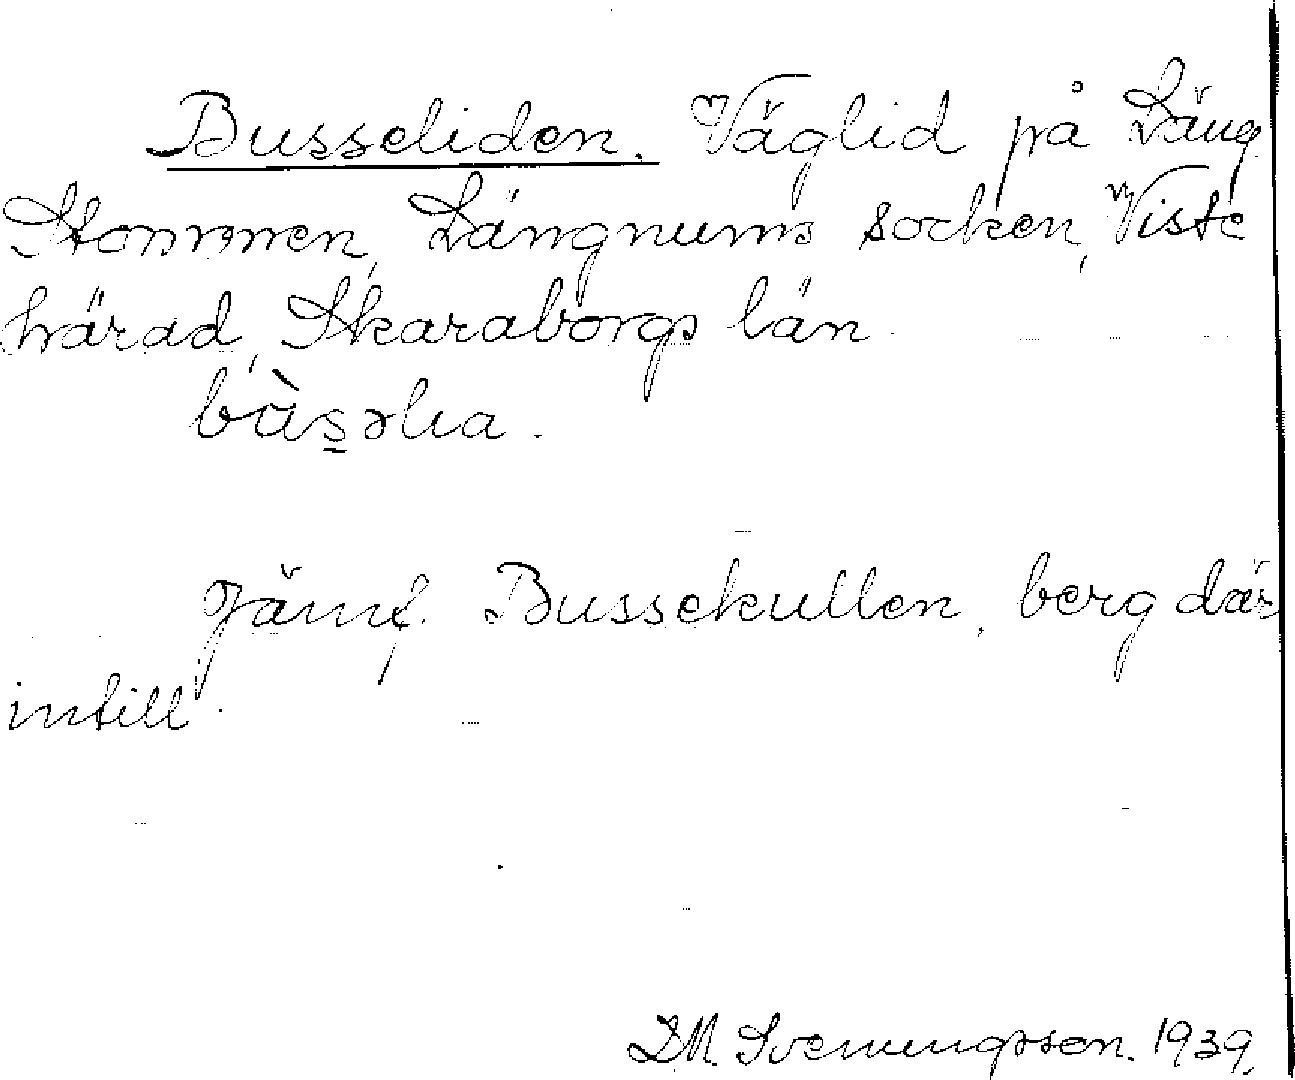 Busseliden. Väglid på Läng
Stommen, Längnums socken, Viste
härad, Skaraborgs län.
bùs̱əlia.
Jämf. Bussekullen, berg där
intill.
D.M. Svenungsson. 1939.